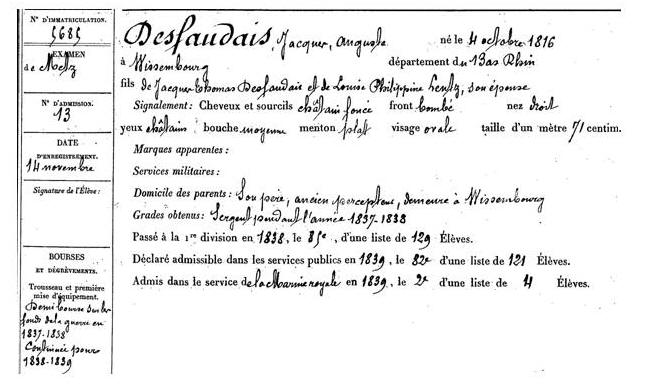 N° D'IMMATRICULATION.
5685
EXAMEN
de Metz
N° D'ADMISSION.
13
DATE
D'ENREGISTREMENT.
14 novembre
Signature de l'Élève :
BOURSES
ET DÉGRÈVEMENTS.
Trousseau et première
mise d'équipement.
Demi bourse sur les
fonds de la guerre en
1837-1838
Continuée pour
1838-1839
Desfaudais, Jacques, Auguste né le 4 octobre 1816
à Wissembourg département du Bas Rhin
fils de Jacques Thomas Desfaudais et de Louise Philippine Hentz, son épouse
Signalement : Cheveux et sourcils châtain foncé front bombé nez droit
yeux châtains bouche moyenne menton plat visage ovale taille d'un mètre 71 centim.
Marques apparentes :
Services militaires :
Domicile des parents : Son père, ancien percepteur, demeure à Wissembourg
Grades obtenus : Sergent pendant l'année 1837-1838
Passé à la 1re division en 1838, le 85e, d'une liste de 129 Élèves.
Déclaré admissible dans les services publics en 1839, le 82e d'une liste de 121 Élèves.
Admis dans le service de la Marine royale en 1839, le 2e d'une liste de 4 Élèves.